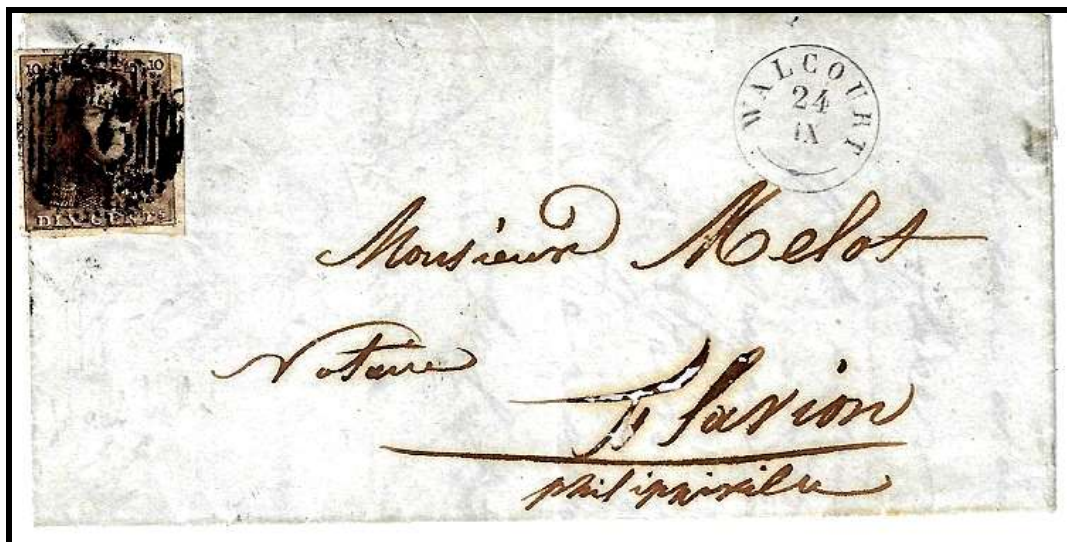 10 10
DIX CENTS
WALCOURT
24
IX
Monsieur Melot
Notaire
Flavion
philippiville